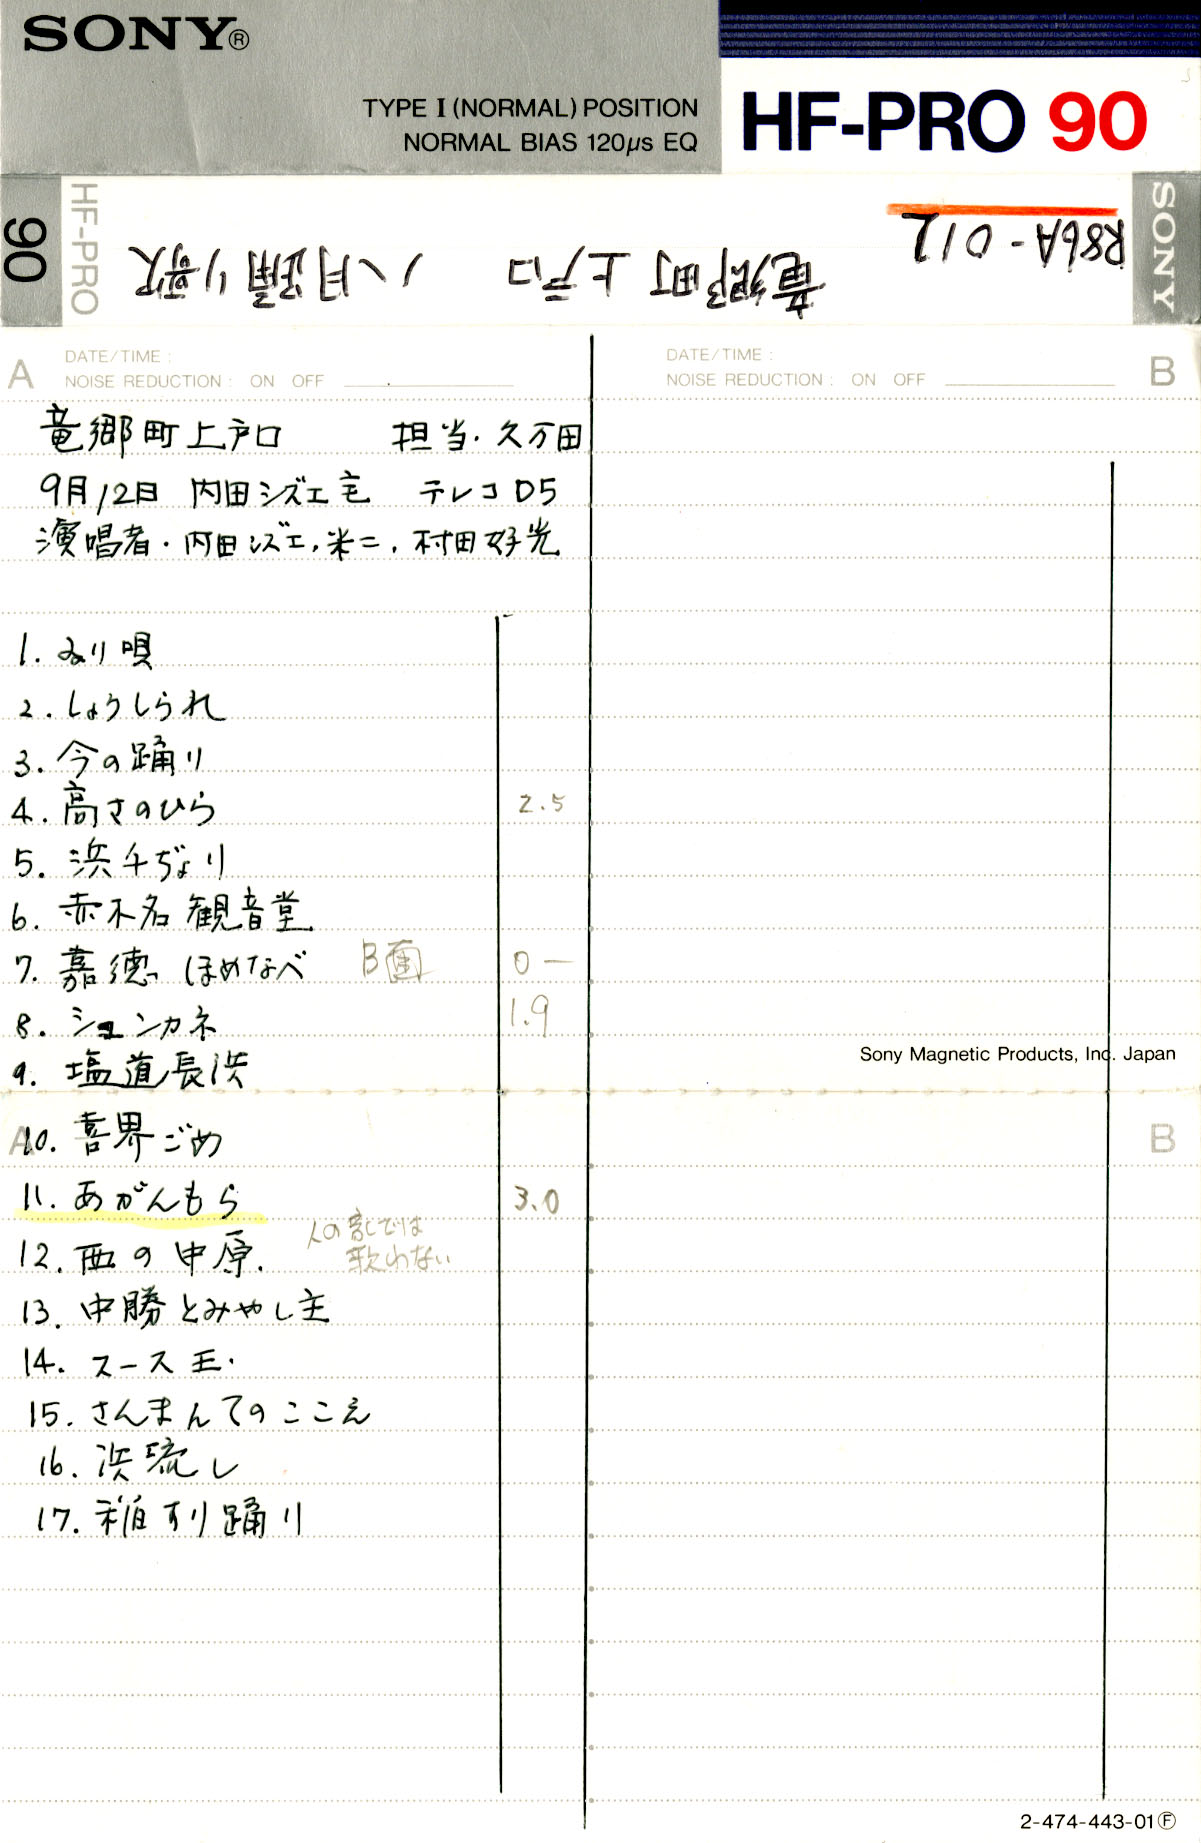 SONY®
TYPE I (NORMAL) POSITION
NORMAL BIAS 120μs EQ
HF-PRO 90
90
HF-PRO
R86A-012
竜郷町上戸口 八月踊り歌
SONY
A DATE/TIME :
NOISE REDUCTION : ON OFF
DATE/TIME : B
NOISE REDUCTION : ON OFF
竜郷町上戸口 担当・久万田
9月12日 内田シズエ宅 テレコD5
演唱者・内田シズエ,米二,村田好光
1. みり唄
2. しょうしられ
3. 今の踊り
4. 高さのひら 2.5
5. 浜千ぢょり
6. 赤木名観音堂
7. 嘉徳ほめなべ B面 0—
8. シュンカネ 1.9
9. 塩道長浜
Sony Magnetic Products, Inc. Japan
A B
10. 喜界ごめ
11. あがんもら 3.0
人の家では
歌わない
12. 西の中原.
13. 中勝とみやし主
14. スース玉.
15. さんまんてのここえ
16. 浜流し
17. 稲すり踊り
2-474-443-01Ⓕ